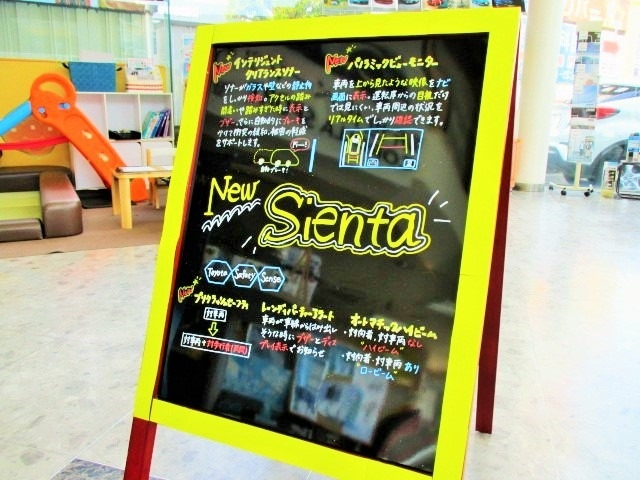 New インテリジェント
クリアランスソナー
ソナーがガラスや壁などの静止物
をしっかり検知。アクセルの踏み
間違いや踏みすぎた時に表示と
ブザー、さらに自動的にブレーキを
かけて衝突の緩和、被害の軽減
をサポートします。
New パノラミックビューモニター
車両を上から見たような映像をナビ
画面に表示。運転席からの目線だけ
では見にくい、車両周辺の状況を
リアルタイムでしっかり確認できます。
New
Sienta
Toyota Safety Sense
New プリクラッシュセーフティ
対車両
対車両+対歩行者(昼間)
レーンディパーチャーアラート
車両が車線からはみ出し
そうな時にブザーとディス
プレイ表示でお知らせ
オートマチックハイビーム
・対向者、対車両なし
"ハイビーム"
・対向者、対車両あり
"ロービーム"